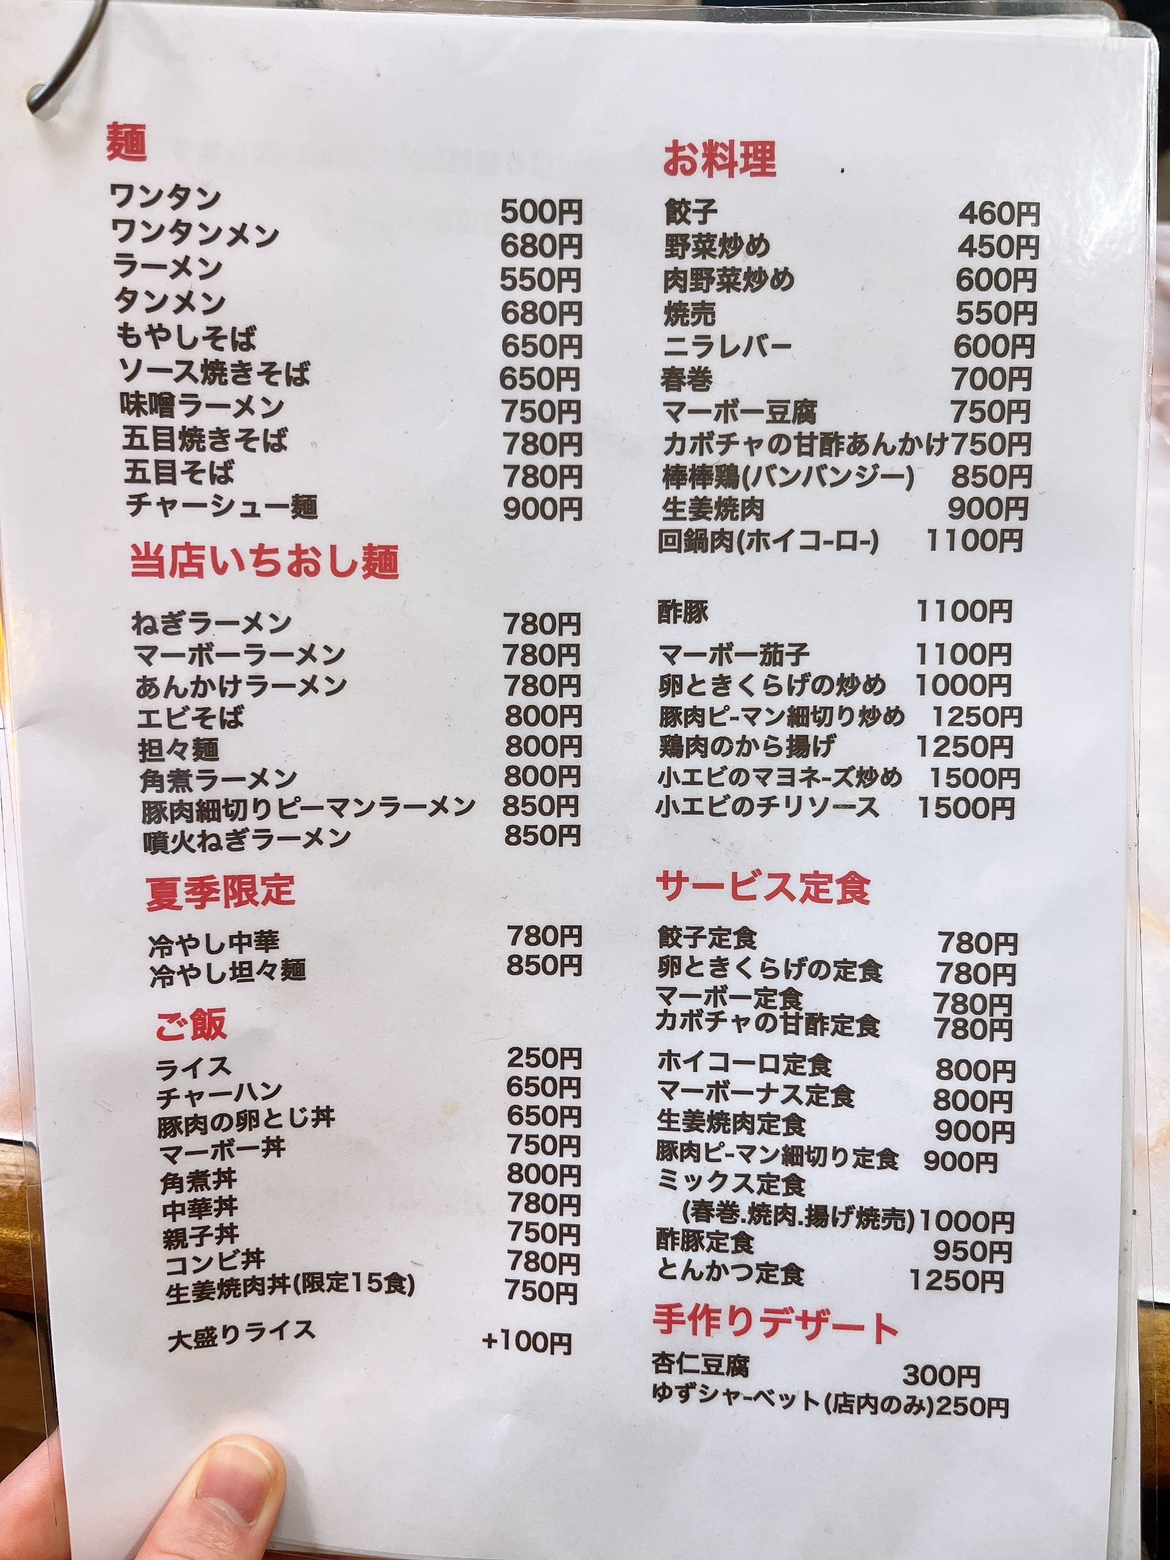 麺
ワンタン 500円
ワンタンメン 680円
ラーメン 550円
タンメン 680円
もやしそば 650円
ソース焼きそば 650円
味噌ラーメン 750円
五目焼きそば 780円
五目そば 780円
チャーシュー麺 900円
当店いちおし麺
ねぎラーメン 780円
マーボーラーメン 780円
あんかけラーメン 780円
エビそば 800円
担々麺 800円
角煮ラーメン 800円
豚肉細切りピーマンラーメン 850円
噴火ねぎラーメン 850円
夏季限定
冷やし中華 780円
冷やし坦々麺 850円
ご飯
ライス 250円
チャーハン 650円
豚肉の卵とじ丼 650円
マーボー丼 750円
角煮丼 800円
中華丼 780円
親子丼 750円
コンビ丼 780円
生姜焼肉丼(限定15食) 750円
大盛りライス +100円
お料理
餃子 460円
野菜炒め 450円
肉野菜炒め 600円
焼売 550円
ニラレバー 600円
春巻 700円
マーボー豆腐 750円
カボチャの甘酢あんかけ750円
棒棒鶏(バンバンジー) 850円
生姜焼肉 900円
回鍋肉(ホイコ-ロ-) 1100円
酢豚 1100円
マーボー茄子 1100円
卵ときくらげの炒め 1000円
豚肉ピ-マン細切り炒め 1250円
鶏肉のから揚げ 1250円
小エビのマヨネ-ズ炒め 1500円
小エビのチリソース 1500円
サービス定食
餃子定食 780円
卵ときくらげの定食 780円
マーボー定食 780円
カボチャの甘酢定食 780円
ホイコーロ定食 800円
マーボーナス定食 800円
生姜焼肉定食 900円
豚肉ピ-マン細切り定食 900円
ミックス定食
(春巻.焼肉.揚げ焼売)1000円
酢豚定食 950円
とんかつ定食 1250円
手作りデザート
杏仁豆腐 300円
ゆずシャ-ベット(店内のみ)250円